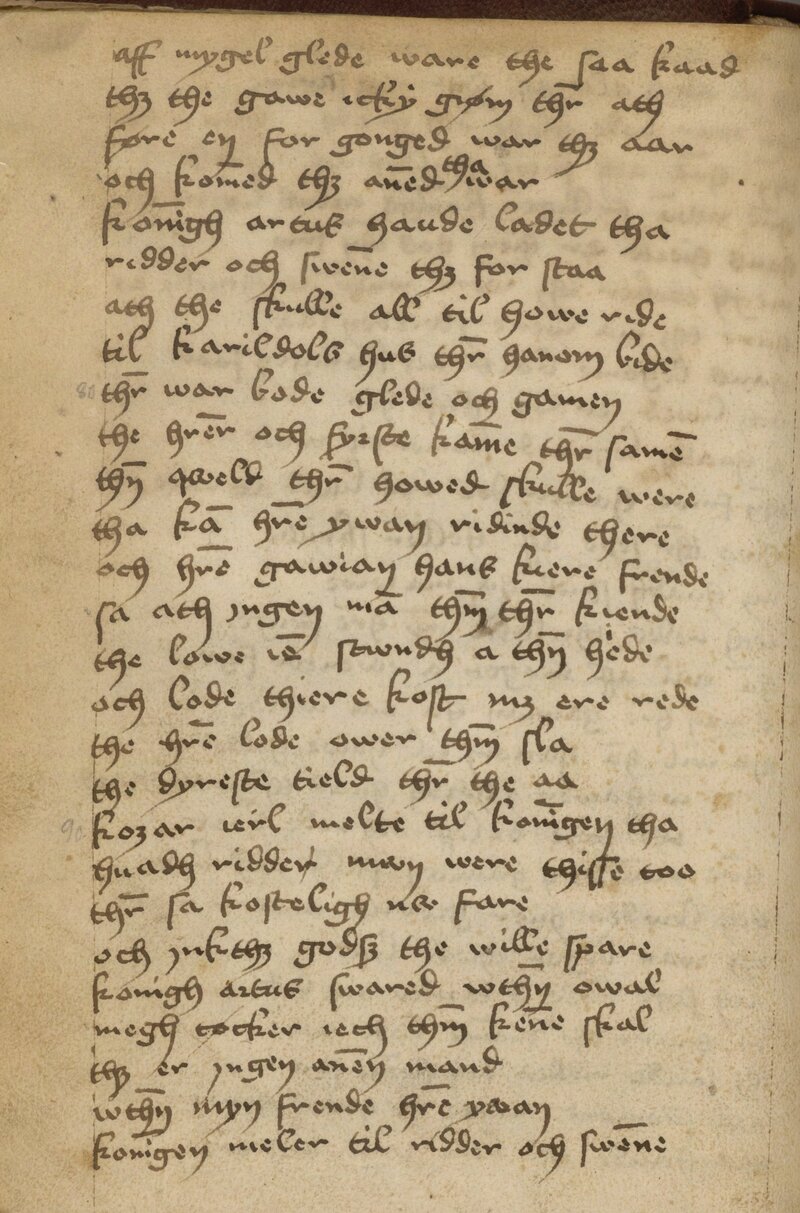 aff mygel glede ware the saa kaad
thꝫ the gawe icky gióm thr̄ ath
føre en for gonged war thꝫ aar
och kom̄ed thꝫ an̄ed tha war
kon̄igh artus haude ladet tha
ridder och swen̄e thꝫ for staa
ath the skulle all til howe ride
til karildols hus thr̄ hanom bide
80 thr̄ war bode glede och gamen
the hrēr och fyrste kam̄e thr̄ samē
thn̄ qweld thr̄ howed skulle were
tha kā hrē ywan ridinde there
och hrē gawian hans kiere frende
sa ath jngen mā thm̄ thr̄ kiende
the lowe iē stwndh a thn̄ hede
och lode thiere kost mꝫ ere rede
the hrē lode ower thm̄ sla
the dyreste tield thr̄ the aa
90 kozar ierl melte til kon̄igen tha
huadh ridder mwn were thisse too
thr̄ sa kosteligh us fare
och jnkthꝫ godß the wille spare
konigh artus swared wthn̄ owal
megh tøcker iech thm̄ ken̄e skal
thꝫ er jngen an̄en mand
wthn̄ myn frende hrē ywan
kon̄igen meler til ridder och swen̄e